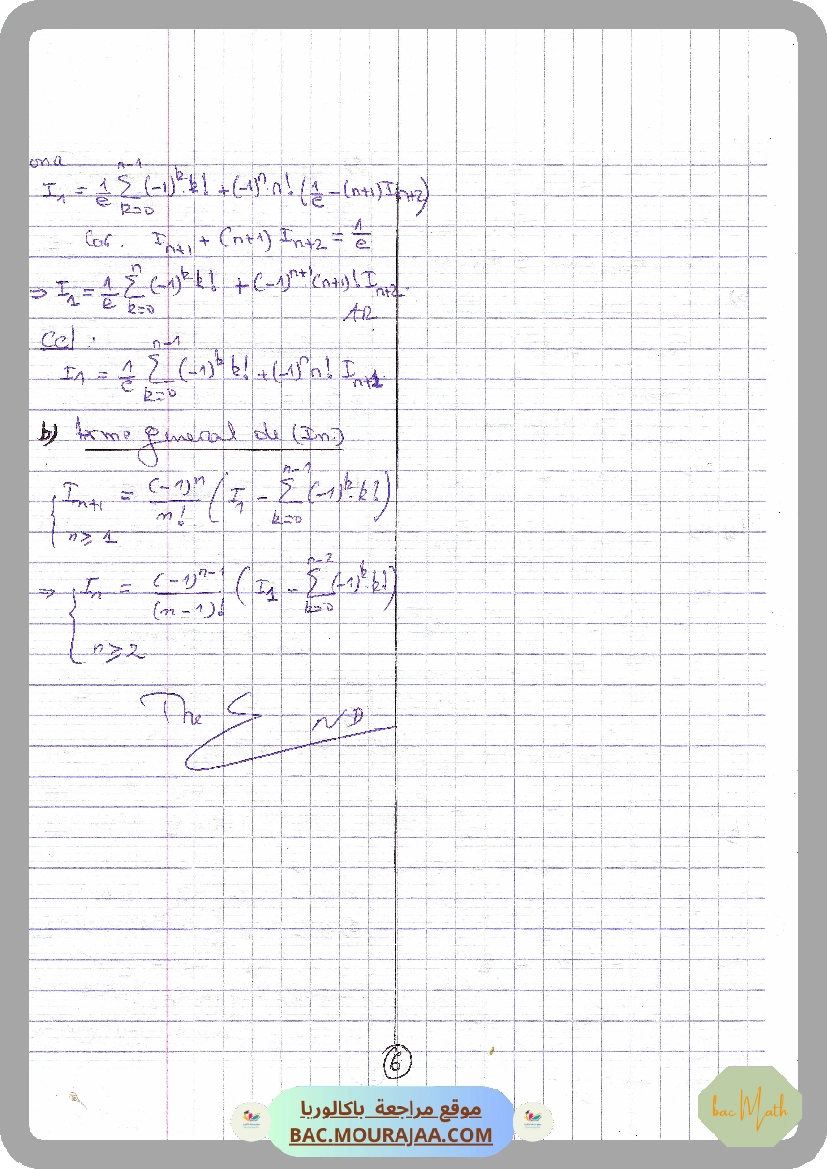 ona
I₁ = 1/e ∑_{k=0}^{n-1} (-1)^k k! + (-1)^n n! (1/e - (n+1) I_{n+2})
Car. I_{n+1} + (n+1) I_{n+2} = 1/e
⇒ I₁ = 1/e ∑_{k=0}^{n} (-1)^k k! + (-1)^{n+1} (n+1)! I_{n+2}
Ccl :
I₁ = 1/e ∑_{k=0}^{n-1} (-1)^k k! + (-1)^n n! I_{n+1}
b) terme general de (In.)
{ I_{n+1} = (-1)^n / n! ( I₁ - ∑_{k=0}^{n-1} (-1)^k k! )
n ≥ 1
⇒ { I_n = (-1)^{n-1} / (n-1)! ( I₁ - ∑_{k=0}^{n-2} (-1)^k k! )
n ≥ 2
The END
6
موقع مراجعة باكالوريا
BAC.MOURAJAA.COM
bac Math